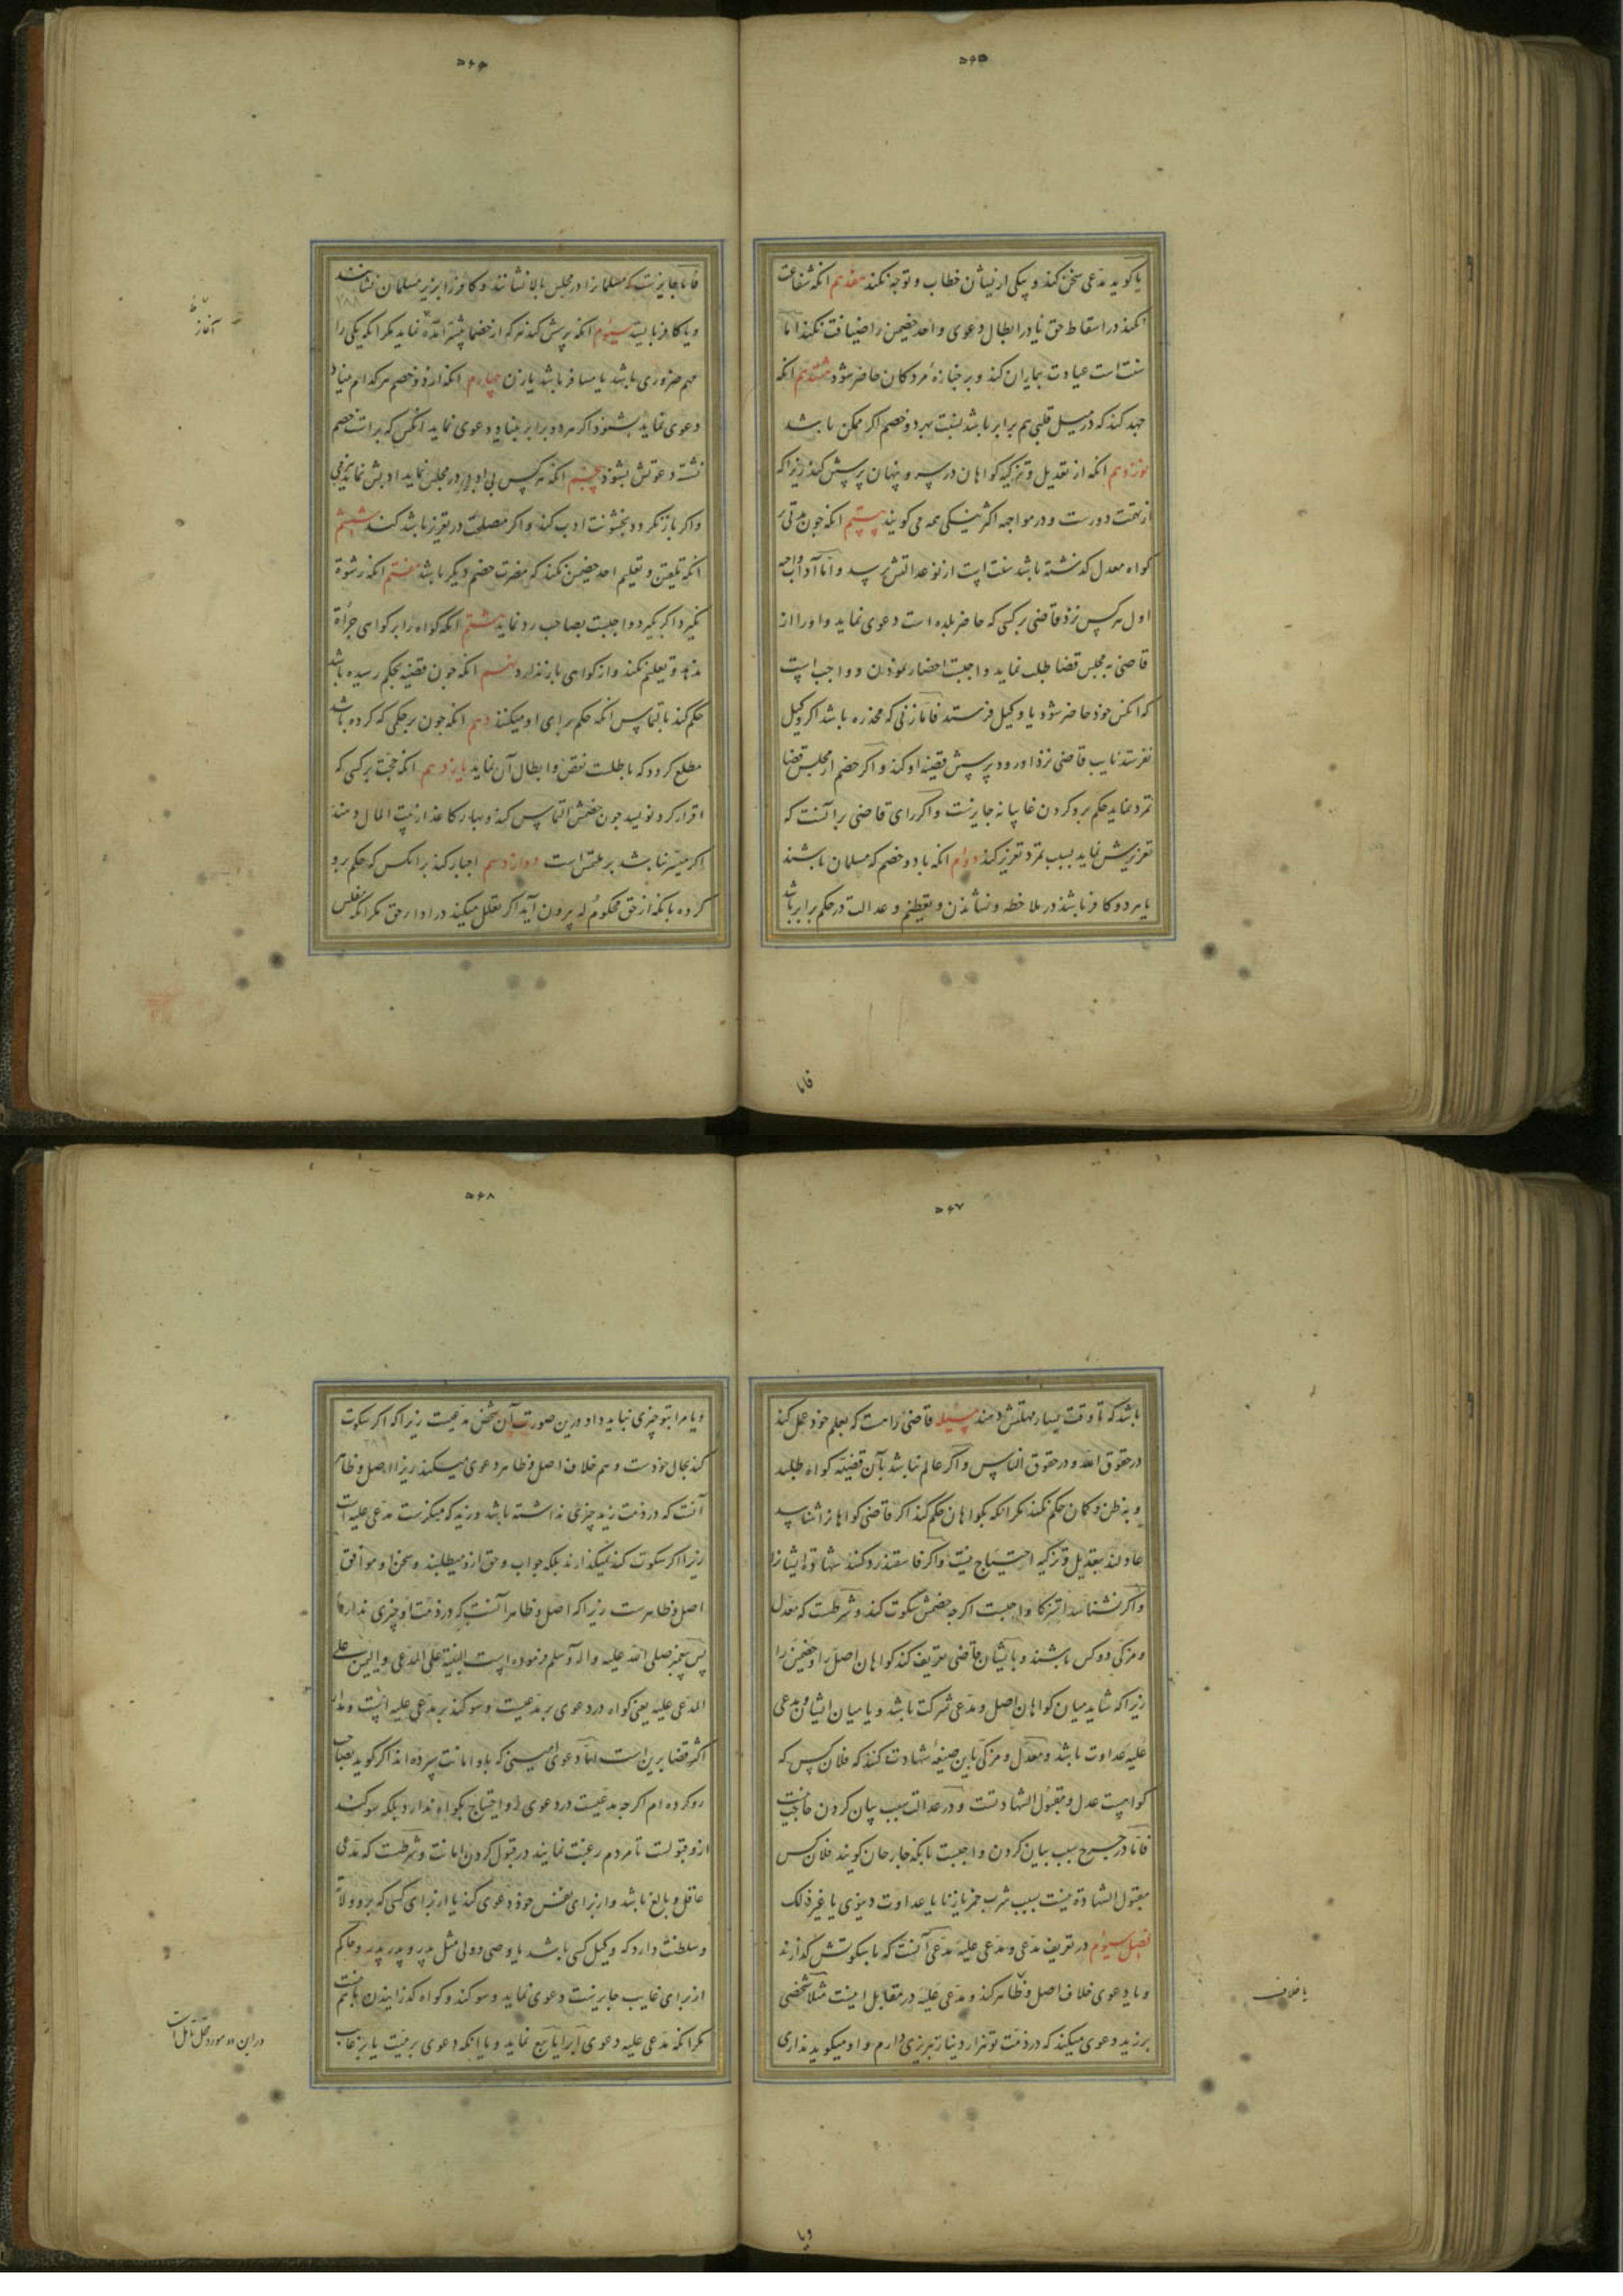 ۵۶۵
یا کوید مدعی سخن کند و بیکی از یشان خطاب و توجه نکند هفدهم انکه شفاعت
نکند در اسقاط حق یا در ابطال دعوی و احد خصمین را ضیافت نکند اما
سنت است عیادت بیماران کند و بر جنازهٔ مردکان حاضر شود هشتدهم انکه
جهد کند که در میل قلبی هم برابر باشد بنسبت بهر دو خصم اکر ممکن باشد
نوزدهم انکه از تعدیل و تزکیه کواهان در سر و پنهان پرسش کند زیرا که
از تهمت دورست و در مواجهه اکثر نیکی همه می کویند بیستم انکه چون مدتی بر
کواه معدل کذشته باشد سنت است از نو عدالتش پرسد و اما آداب واجبه
اول هر کس نزد قاضی بر کسی که حاضر بلده است دعوی نماید و او را از
قاضی به مجلس قضا طلب نماید واجبست احضار نمودن و واجب است
که انکس خود حاضر شود یا وکیل فرستد فاما زنی که مخدره باشد اکر وکیل
نفرستد نایب قاضی نزد او رود و پرسش قضیه او کند و اکر خصم از مجلس قضا
تمرد نماید حکم برو کردن غایبانه جایزست و اکر رای قاضی بر آنست که
تعزیرش نماید بسبب تمرد تعزیر کند دوام انکه با دو خصم که مسلمان باشند
یا هر دو کافر باشند در ملاحظه و نشاندن و تعظیم و عدالت در حکم برابر باشد
فاما
۵۶۶
فاما جایزست که مسلمانرا در مجلس بالا نشانند و کافر را بزیر مسلمان نشانند
و یا کافر بایستد سیوم انکه پرسش کند هر که از خصما پیشتر آمده نماید مکر انکه یکی را
مهم ضروری باشد یا مسافر باشد یا زن چهارم انکه از دو خصم هر کدام بنیاد
دعوی نماید بشنود اکر هر دو برابر بنیاد دعوی نماید انکس که براست خصم
نشسته دعوتش بشنود پنجم انکه هر کس بی ادبی در مجلس نماید ادبش نماید بنرمی
و اکر باز نکردد بخشونت ادب کند و اکر مصلحت در تعزیر باشد کند ششم
انکه تلقین و تعلیم احد خصمین نکند که مضرت خصم دیکر باشد هفتم انکه رشوة
نکیرد اکر بکیرد واجبست بصاحب رد نماید هشتم انکه کواه را بر کواهی جراة
ندهد و تعلیم نکند و از کواهی باز ندارد نهم انکه چون قضیه بحکم رسیده باشد
حکم کند بالتماس انکه حکم برای او میکنند دهم انکه چون بر حکمی که کرده باشد
مطلع کردد که باطلست نقض و ابطال آن نماید یازدهم انکه حجت بر کسی که
اقرار کرد نویسد چون خصمش التماس کند و بهاء کاغذ از بیت المال دهند
اکر میسر نباشد بر ملتمس است دوازدهم اجبار کند بر انکس که حکم برو
کرده بانکه از حق محکوم له بیرون آید اکر تعلل میکند در اداء حق مکر انکه مفلس
آغاز
۵۶۷
باشد که تا وقت یسار مهلتش دهند مسئله قاضی راست که بعلم خود عمل کند
در حقوق الله و در حقوق الناس و اکر عالم نباشد بآن قضیه کواه طلبد
و به ظن و کمان حکم نکند مکر انکه بکواهان حکم کند اکر قاضی کواهانرا شناسد
عادلند بتعدیل و تزکیه احتیاج نیست و اکر فاسقند رد کند شهادة ایشانرا
و اکر نشناسد استزکا واجبست اکرچه خصمش سکوت کند و شرطست که معدل
و مزکی دو کس باشند و بایشان قاضی تعریف کند کواهان اصل را و خصمین را
زیرا که شاید میان کواهان اصل و مدعی شرکت باشد و یا میان ایشان و مدعی
علیه عداوت باشد و معدل و مزکی باین صیغه شهادت کنند که فلان کس که
کواهست عدل و مقبول الشهادتست و در عدالت سبب بیان کردن حاجت نیست
فاما در جرح سبب بیان کردن واجبست بانکه جارحان کویند فلان کس
مقبول الشهادة نیست بسبب شرب خمر یا زنا یا عداوت دنیوی یا غیر ذلک
فصل سیوم در تعریف مدعی و مدعی علیه مدعی آنست که با سکوتش کذارند
و یا دعوی خلاف اصل و ظاهر کند و مدعی علیه در مقابل اینست مثلا شخصی
بر زید دعوی میکند که در ذمت تو هزار دینار تبریزی دارم و او میکوید نداری
یا خلاف
ویا
۵۶۸
و یا مرا بتو چیزی نباید داد درین صورت آن شخص مدعیست زیرا که اکر سکوت
کند بحال خودست و هم خلاف اصل و ظاهر دعوی میکند زیرا اصل و ظاهر
آنست که در ذمت زید چیزی نداشته باشد و زید که منکرست مدعی علیه است
زیرا اکر سکوت کند نمیکذارند بلکه جواب و حق ازو میطلبند و سخن او موافق
اصل و ظاهرست زیرا که اصل و ظاهر آنست که در ذمت او چیزی ندارد
پس پیغمبر صلی الله علیه واله وسلم فرموده است البینة علی المدعی والیمین علی
المدعی علیه یعنی کواه در دعوی بر مدعیست و سوکند بر مدعی علیه است و مدار
اکثر قضا برین است اما دعوی امینی که باو امانت سپرده اند اکر کوید بصاحب
رد کرده ام اکرچه مدعیست در دعوی او احتیاج بکواه ندارد بلکه سوکند
ازو قبولست تا مردم رغبت نمایند در قبول کردن امانت و شرطست که مدعی
عاقل و بالغ باشد و از برای نفس خود دعوی کند یا از برای کسی که برو ولایة
و سلطنت دارد که وکیل کسی باشد یا وصی و ولی مثل پدر و پدر پدر و حاکم
از برای غایب جایزنیست دعوی نماید و سوکند و کواه کذرانیدن باهم نیست
مکر انکه مدعی علیه دعوی ابرا یا بیع نماید و یا انکه دعوی بر میت یا بر غایب
در این دو مورد محل تامل است